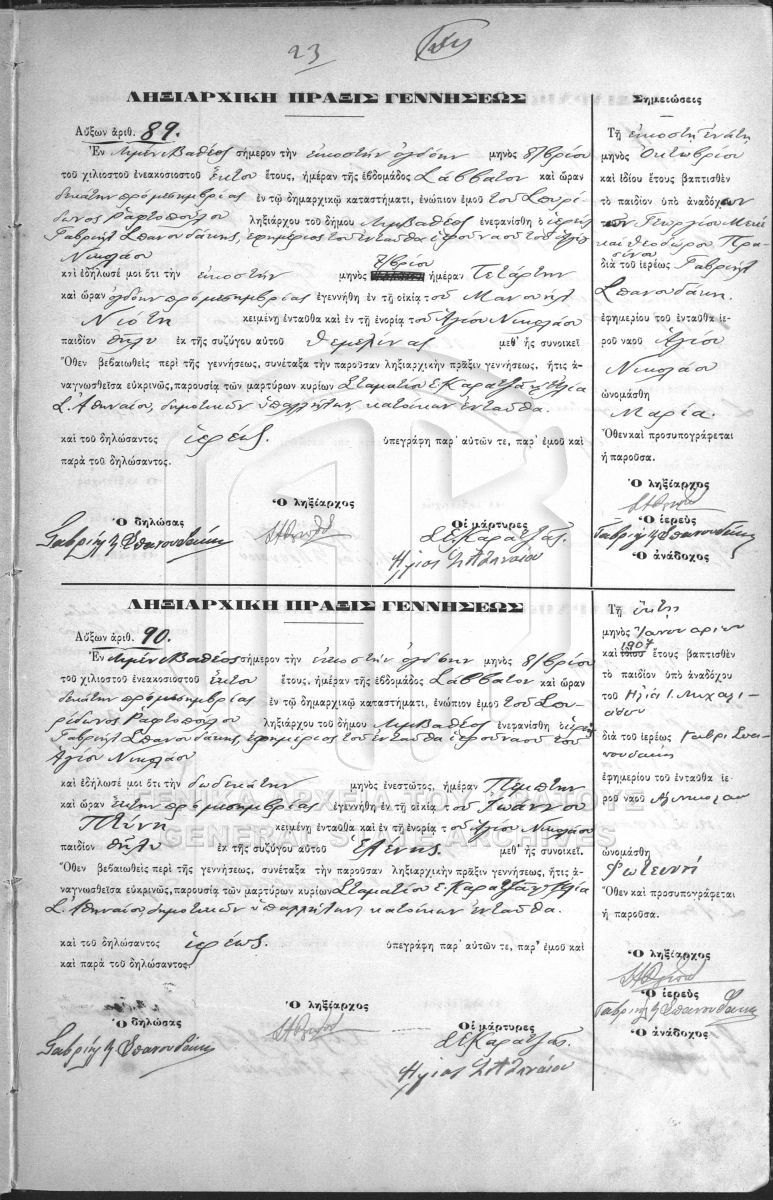 23
ΛΗΞΙΑΡΧΙΚΗ ΠΡΑΞΙΣ ΓΕΝΝΗΣΕΩΣ
Αὔξων ἀριθ. 89.
Ἐν Λιμέν. Βαθέος σήμερον τὴν εἰκοστὴν ὀγδόην μηνὸς 8/βρίου
τοῦ χιλιοστοῦ ἐνεακοσιοστοῦ ἕκτου ἔτους, ἡμέραν τῆς ἑβδομάδος Σάββατον καὶ ὥραν
δεκάτην πρὸ μεσημβρίας ἐν τῷ δημαρχικῷ καταστήματι, ἐνώπιον ἐμοῦ τοῦ Σπυρί
δωνος Ραφτοπούλου ληξιάρχου τοῦ δήμου Λιμ. Βαθέος ἐνεφανίσθη ὁ ἱερεὺς
Γαβριὴλ Σπανουδάκης, ἐφημέριος τοῦ ἐνταῦθα ἱεροῦ ναοῦ τοῦ Ἁγίου
Νικολάου
καὶ ἐδήλωσέ μοι ὅτι τὴν εἰκοστὴν μηνὸς 7/βρίου ἡμέραν Τετάρτην
καὶ ὥραν ὀγδόην πρὸ μεσημβρίας ἐγεννήθη ἐν τῇ οἰκίᾳ τοῦ Μανουὴλ
Νιότη κειμένῃ ἐνταῦθα καὶ ἐν τῇ ἐνορίᾳ τοῦ Ἁγίου Νικολάου
παιδίον θῆλυ ἐκ τῆς συζύγου αὐτοῦ Θεμελίνας μεθ' ἧς συνοικεῖ
Ὅθεν βεβαιωθεὶς περὶ τῆς γεννήσεως, συνέταξα τὴν παροῦσαν ληξιαρχικὴν πρᾶξιν γεννήσεως, ἥτις ἀ-
ναγνωσθεῖσα εὐκρινῶς, παρουσίᾳ τῶν μαρτύρων κυρίων Σταματίου Ε. Καρατζᾶ κ Ἠλία
Σ. Ἀθηναίου, δημοτικῶν ὑπαλλήλων, κατοίκων ἐνταῦθα.
καὶ τοῦ δηλώσαντος ἱερέως. ὑπεγράφη παρ' αὐτῶν τε, παρ' ἐμοῦ καὶ
παρὰ τοῦ δηλώσαντος.
Ὁ ληξίαρχος
Ὁ δηλώσας Οἱ μάρτυρες
Γαβριὴλ Σπανουδάκης Σ Ε Καρατζᾶς.
Ἠλίας Σ Ἀθηναίου
Σημειώσεις
Τῇ εἰκοστῇ ἐνάτῃ
μηνὸς Ὀκτωβρίου
καὶ ἰδίου ἔτους βαπτισθὲν
τὸ παιδίον ὑπὸ ἀναδόχων
τῶν Γεωργίου
καὶ Θεοδώρου
διὰ τοῦ ἱερέως Γαβριὴλ
Σπανουδάκη.
ἐφημερίου τοῦ ἐνταῦθα ἱε-
ροῦ ναοῦ Ἁγίου
Νικολάου
ὠνομάσθη
Μαρία.
Ὅθεν καὶ προσυπογράφεται
ἡ παροῦσα.
Ὁ ληξίαρχος
Ὁ ἱερεὺς
Γαβριὴλ Σπανουδάκης
Ὁ ἀνάδοχος
ΛΗΞΙΑΡΧΙΚΗ ΠΡΑΞΙΣ ΓΕΝΝΗΣΕΩΣ
Αὔξων ἀριθ. 90.
Ἐν Λιμέν. Βαθέος σήμερον τὴν εἰκοστὴν ὀγδόην μηνὸς 8/βρίου
τοῦ χιλιοστοῦ ἐνεακοσιοστοῦ ἕκτου ἔτους, ἡμέραν τῆς ἑβδομάδος Σάββατον καὶ ὥραν
δεκάτην πρὸ μεσημβρίας ἐν τῷ δημαρχικῷ καταστήματι, ἐνώπιον ἐμοῦ τοῦ Σπυ-
ρίδωνος Ραφτοπούλου ληξιάρχου τοῦ δήμου Λιμ. Βαθέος ἐνεφανίσθη ὁ ἱερεὺς
Γαβριὴλ Σπανουδάκης, ἐφημέριος τοῦ ἐνταῦθα ἱεροῦ ναοῦ τοῦ
Ἁγίου Νικολάου
καὶ ἐδήλωσέ μοι ὅτι τὴν δωδεκάτην μηνὸς ἐνεστῶτος, ἡμέραν Πέμπτην
καὶ ὥραν ἕκτην πρὸ μεσημβρίας ἐγεννήθη ἐν τῇ οἰκίᾳ τοῦ Ἰωάννου
κειμένῃ ἐνταῦθα καὶ ἐν τῇ ἐνορίᾳ τοῦ Ἁγίου Νικολάου
παιδίον θῆλυ ἐκ τῆς συζύγου αὐτοῦ Ἑλένης. μεθ' ἧς συνοικεῖ.
Ὅθεν βεβαιωθεὶς περὶ τῆς γεννήσεως, συνέταξα τὴν παροῦσαν ληξιαρχικὴν πρᾶξιν γεννήσεως, ἥτις ἀ-
ναγνωσθεῖσα εὐκρινῶς, παρουσίᾳ τῶν μαρτύρων κυρίων Σταματίου Ε. Καρατζᾶ κ Ἠλία
Σ. Ἀθηναίου, δημοτικῶν ὑπαλλήλων, κατοίκων ἐνταῦθα.
καὶ τοῦ δηλώσαντος ἱερέως. ὑπεγράφη παρ' αὐτῶν τε, παρ' ἐμοῦ καὶ
καὶ παρὰ τοῦ δηλώσαντος.
Ὁ ληξίαρχος
Ὁ δηλώσας Οἱ μάρτυρες
Γαβριὴλ Σπανουδάκης Σ Ε Καρατζᾶς.
Ἠλίας Σ Ἀθηναίου
Τῇ ἕκτῃ
μηνὸς Ἰανουαρίου
καὶ 1907 ἔτους βαπτισθὲν
τὸ παιδίον ὑπὸ ἀναδόχου
τοῦ Ἠλία Ι. Μιχαλι-
άδου
διὰ τοῦ ἱερέως Γαβρι Σπα-
νουδάκη
ἐφημερίου τοῦ ἐνταῦθα ἱε-
ροῦ ναοῦ Ἁγ Νικολάου
ὠνομάσθη
Φωτεινή
Ὅθεν καὶ προσυπογράφεται
ἡ παροῦσα.
Ὁ ληξίαρχος
Ὁ ἱερεὺς
Γαβριὴλ Σπανουδάκης
Ὁ ἀνάδοχος
ΓΕΝΙΚΑ ΑΡΧΕΙΑ ΤΟΥ ΚΡΑΤΟΥΣ
GENERAL STATE ARCHIVES